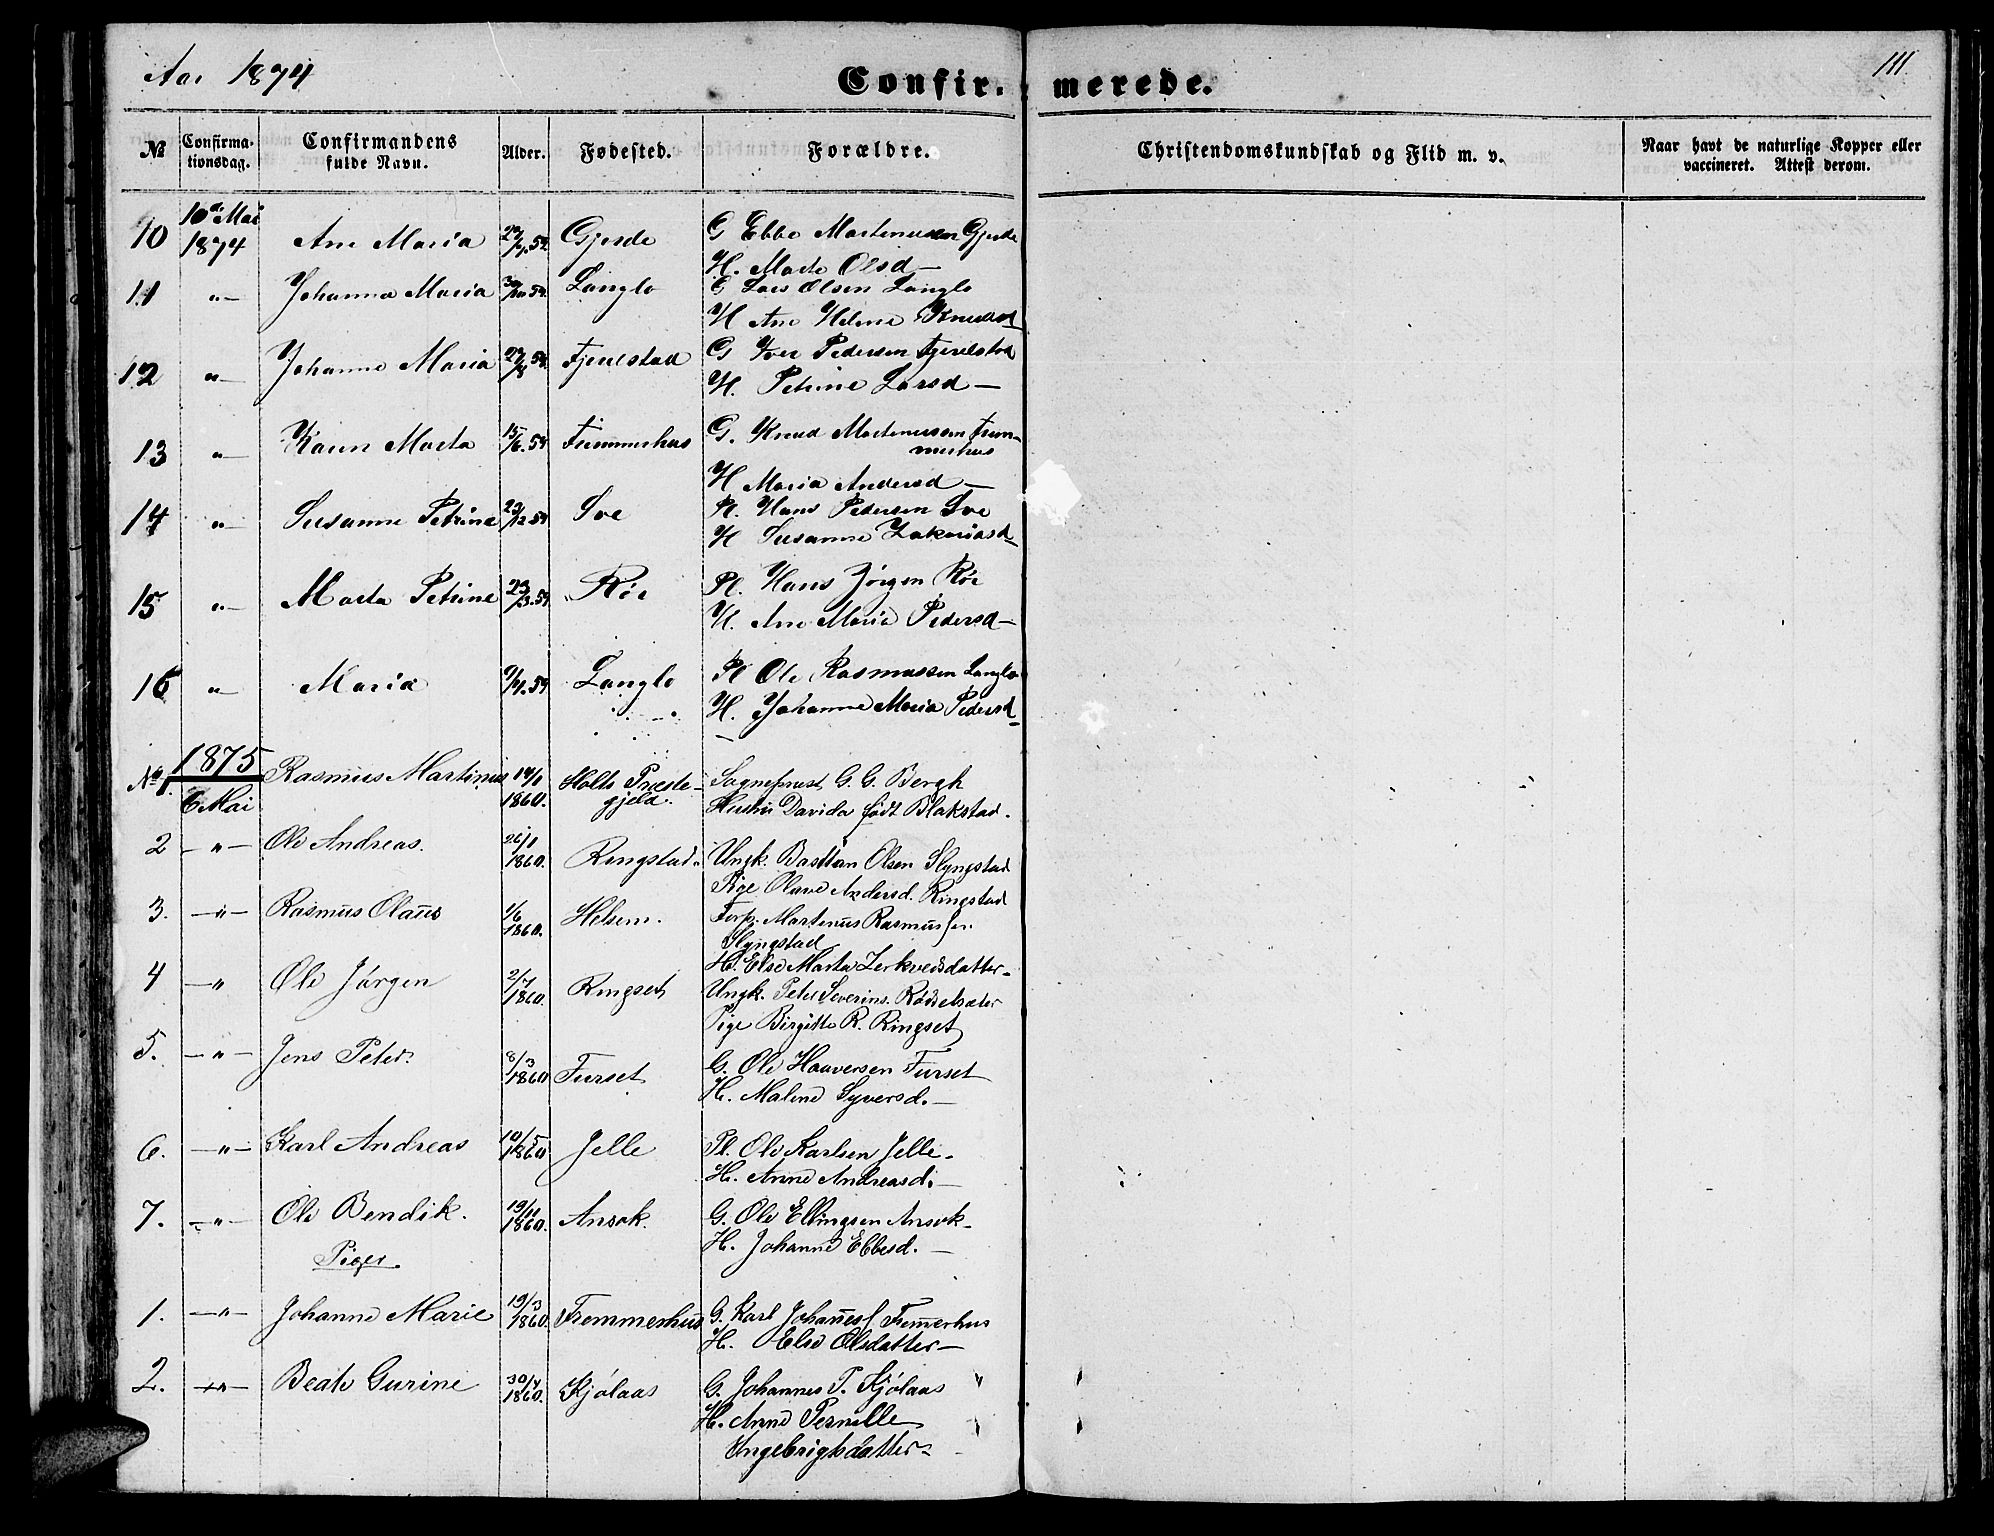 Aar 1874
Confir- merede.
111.
№ Confirma-tionsdag. Confirmandens fulde Navn. Alder. Fødested. Forældre. Christendomskundskab og Flid m. v. Naar havt de naturlige Kopper eller vaccineret. Attest derom.
10 10de Mai 1874 Ane Maria Gjerde G Ebbe Martinussen Gjerde
H. Marte Olsd —
11 "— Johanne Maria Langlo G Lars Olsen Langlo
H Ane Helene Knudsd
12 "— Johanne Maria Fjerelstad G Iver Pedersen Fjerelstad
H. Petrine Larsd —
13 "— Karen Marta 15/6.59 Fremmerhus G. Knud Martinussen Frem-
merhus
H Maria Andersd —
14 "— Susanne Petrine 23/12.59 Sve Pl. Hans Pedersen Sve
H Susanne Zakariasd —
15 "— Marta Petrine Røe Pl. Hans Jørgen Røe
H. Ane Maria Pedersd —
16 "— Maria Langlo Pl Ole Rasmussen Langlo
H. Johanne Maria Pedersd —
1875
№ 1. 6 Mai Rasmus Martinus 14/1 1860. Holts Præste-gjeld. Sogneprest G. G. Bergh
Hustru Davida født Blakstad.
2 —"— Ole Andreas. 26/1 1860. Ringstad. Ungk. Bastian Olsen Slyngstad
Pige Olave Andersd. Ringstad
3. —"— Rasmus Olaus 1/6 1860. Helsem. Forp. Martinus Rasmussen
Slyngstad
H. Else Marta Zerkvedsdatter.
4 —" Ole Jørgen 2/7 1860. Ringset Ungk. Peter Severins. Rødsetsæter
Pige Birgitte R. Ringset
5. —"— Jens Peter. 8/3 1860 Furset G. Ole Haaversen Furset
H. Malene Syversd. —
6. —"— Karl Andreas 10/5 1860 Jelle Pl. Ole Karlsen Jelle.
H. Anne Andreasd. —
7. —"— Ole Bendik. 19/11 1860. Ansok. G. Ole Ellingsen Ansok.
H. Johanne Ebbesd. —
Piger.
1. —"— Johanne Marie 19/3 1860. Fremmerhus G. Karl Johaness Fremerhus
H. Else Olsdatter —
2. —"— Beate Gurine 30/4 1860. Kjølaas G. Johannes P. Kjølaas "
H. Anne Pernille
Ingebrigtsdatter